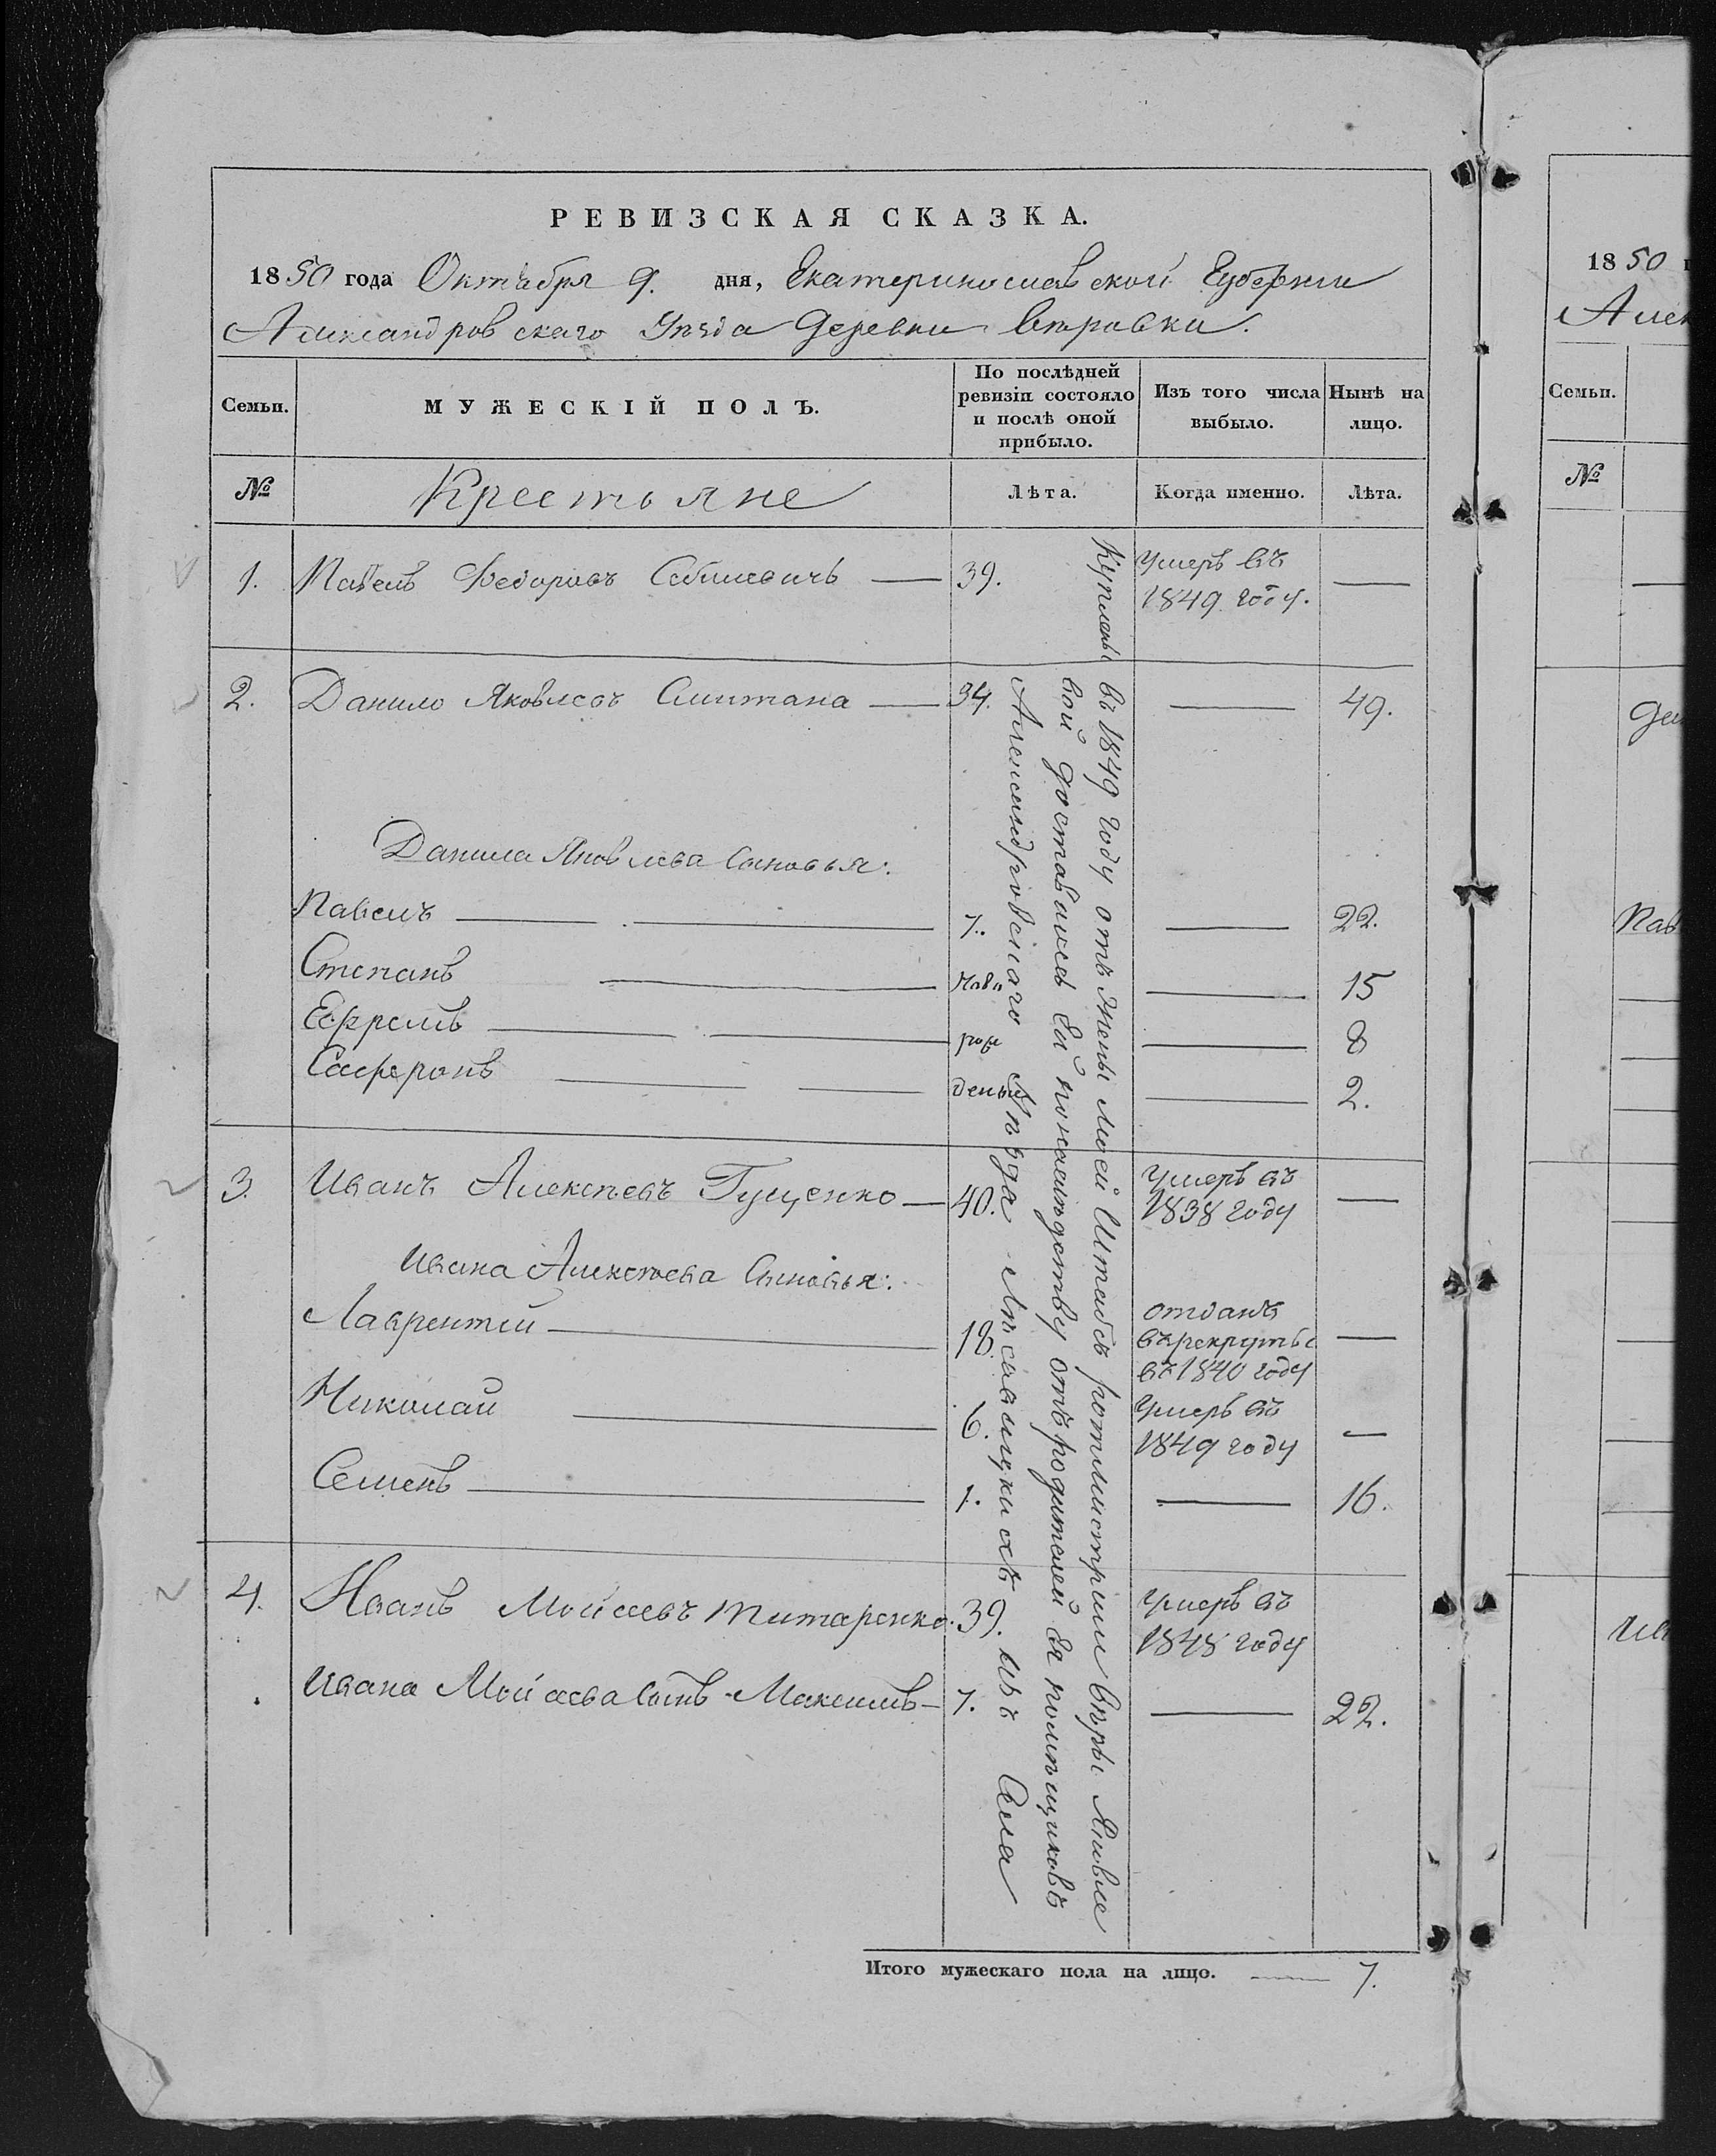 РЕВИЗСКАЯ СКАЗКА.
1850 года Октября 9. дня, Екатеринославской Губернии
Александровскаго Уѣзда Деревни
Семьи.
МУЖЕСКІЙ ПОЛЪ.
По послѣдней ревизіи состояло и послѣ оной прибыло.
Изъ того числа выбыло.
Нынѣ на лицо.
№
Крестьяне
Лѣта.
Когда именно.
Лѣта.
1. Павелъ Федоровъ 39. Умеръ въ
1849 году.
2. Данило Яковлевъ Сметана 34. 49.
Данила Яковлева Сыновья:
Павелъ 7. 22.
Степанъ ново 15
Ефремъ рож 8
Сафронъ денъ 2.
3. Иванъ Алексѣевъ Гущенко 40. Умеръ въ
1838 году
Ивана Алексѣева Сыновья:
Лаврентей 18. отданъ
въ рекруты
въ 1840 году
Николай 6. Умеръ въ
1849 году
Семенъ 1. 16.
4. Иванъ Мойсеевъ Титаренко. 39. Умеръ въ
1848 году
Ивана Мойсева Сынъ Максимъ 7. 22.
Куплены въ 1849 году отъ жены моей Штабсъ ротмистрши Вѣры Яковле
вой доставшіеся ей по наслѣдству отъ родителей ея помѣщиковъ
Александровскаго Уѣзда изъ Села
Итого мужескаго пола на лицо. 7.
1850
Алек
Семьи.
№
Пав